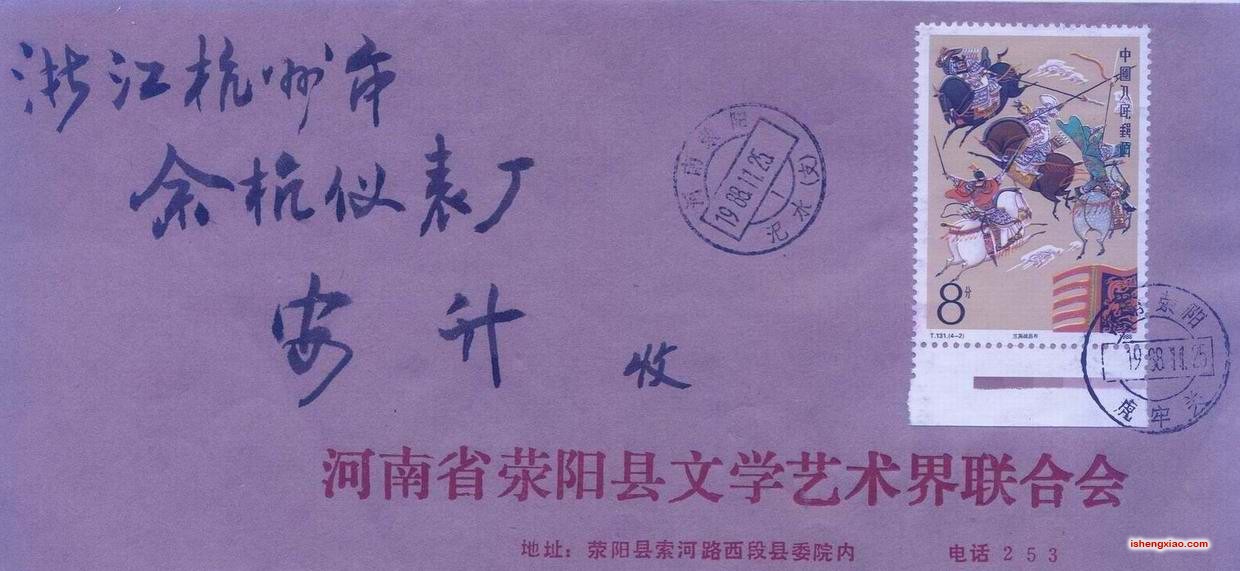 浙江杭州市
余杭仪表厂
安升 收
河南荥阳
1988.11.25
1
汜水(支)
中国人民邮政
8分
T.131.(4-2)
三英战吕布
1988
荥阳
1988.11.25
虎牢关
河南省荥阳县文学艺术界联合会
地址：荥阳县索河路西段县委院内 电话 253
ishengxiao.com